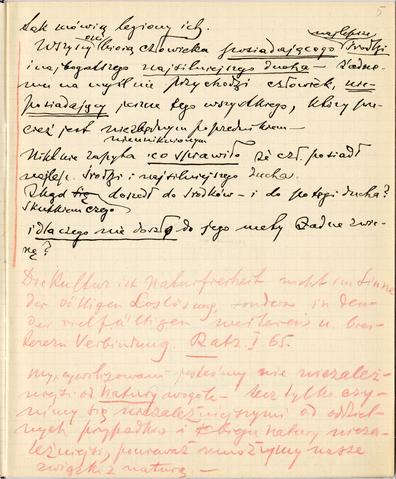 5
Tak mówią legiony ich.
Wszyscy oni biorą człowieka posiadającego najlepsze środki
i najbogatszego najsilniejszego ducha — Żadne-
mu na myśl nie przychodzi człowiek, nie-
posiadający jeszcze tego wszystkiego, który prze-
cież jest niezbędnym poprzednikiem —
Nikt nie zapyta co sprawiło że czł. posiadł
najleps. środki i najsilniejszego ducha.
Skąd się doszedł do środków — i do potęgi ducha?
Skutkiem czego
i dlaczego nie doszło do jego mety Żadne zwie-
rzę?
Die Kultur ist Naturfreiheit nicht im Sinne
der völligen Loslösung, sondern in dem
der vielfältigen weiteren u. brei-
teren Verbindung. Ratz. I 65.
My, cywilizowani jesteśmy nie niezależ-
niejsi od natury wogóle — lecz tylko czy-
nimy się niezależniejszymi od oddziel-
nych przypadków i zbiegu natury nieza-
leżniejsi, ponieważ mnożymy nasze
związki z naturą —